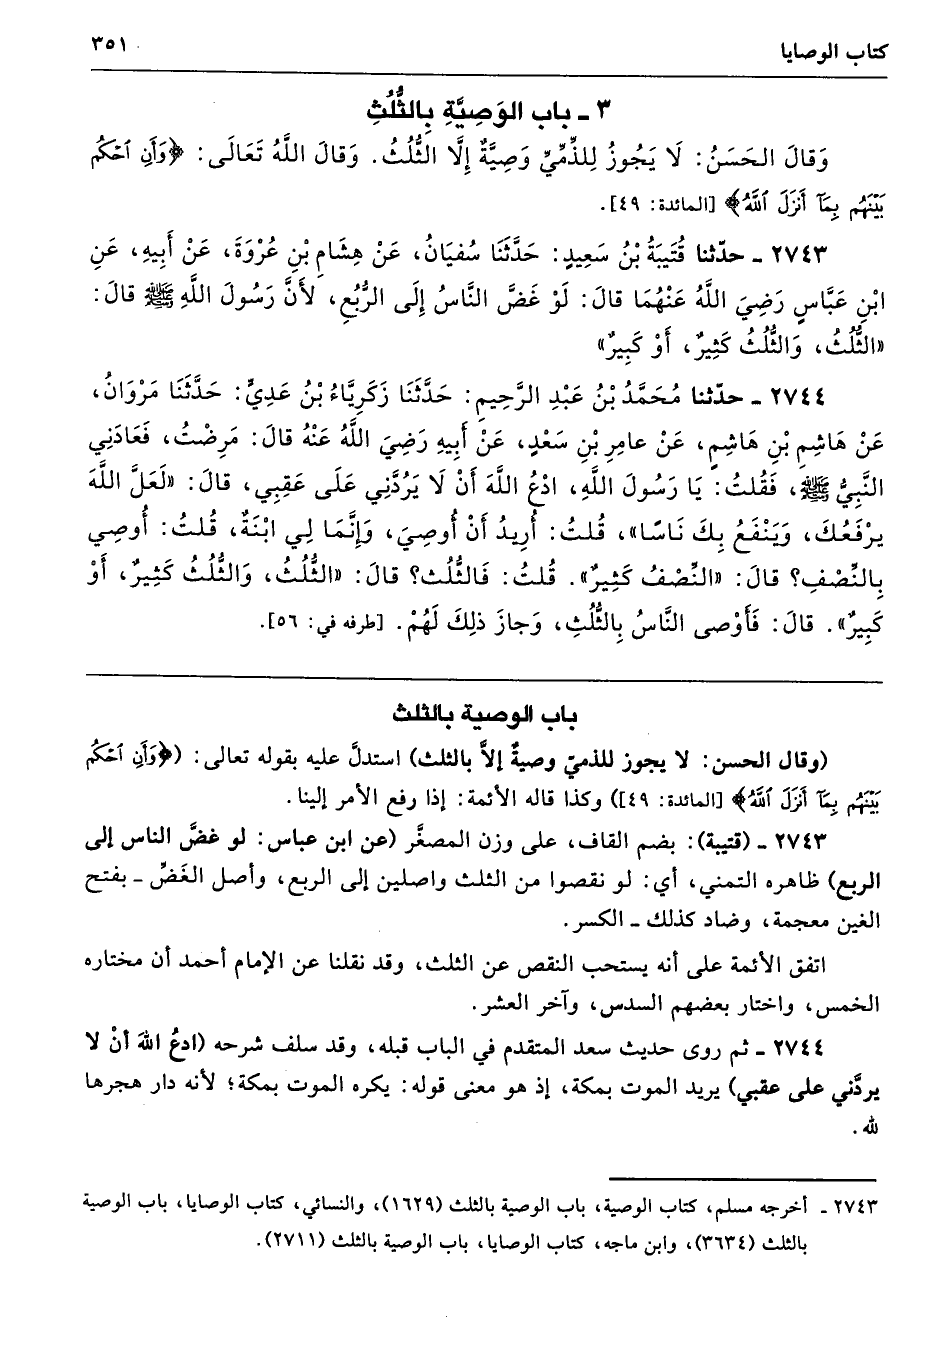 كتاب الوصايا
٣٥١
٣ ـ باب الوَصِيَّةِ بِالثُّلُثِ
وَقالَ الحَسَنُ: لَا يَجُوزُ لِلذِّمِّيِّ وَصِيَّةٌ إِلَّا الثُّلُثُ. وَقالَ اللَّهُ تَعَالَى: ﴿وَأَنِ ٱحۡكُم
بَيۡنَهُم بِمَآ أَنزَلَ ٱللَّهُ﴾ [المائدة: ٤٩].
٢٧٤٣ ـ حدّثنا قُتَيبَةُ بْنُ سَعِيدٍ: حَدَّثَنَا سُفيَانُ، عَنْ هِشَامِ بْنِ عُرْوَةَ، عَنْ أَبِيهِ، عَنِ
ابْنِ عَبَّاسٍ رَضِيَ اللَّهُ عَنْهُمَا قالَ: لَوْ غَضَّ النَّاسُ إِلَى الرُّبُعِ، لأَنَّ رَسُولَ اللَّهِ ﷺ قالَ:
«الثُّلُثُ، وَالثُّلُثُ كَثِيرٌ، أَوْ كَبِيرٌ»
٢٧٤٤ ـ حدّثنا مُحَمَّدُ بْنُ عَبْدِ الرَّحِيمِ: حَدَّثَنَا زَكَرِيَّاءُ بْنُ عَدِيٍّ: حَدَّثَنَا مَرْوَانُ،
عَنْ هَاشِمِ بْنِ هَاشِمٍ، عَنْ عامِرِ بْنِ سَعْدٍ، عَنْ أَبِيهِ رَضِيَ اللَّهُ عَنْهُ قالَ: مَرِضْتُ، فَعَادَنِي
النَّبِيُّ ﷺ، فَقُلتُ: يَا رَسُولَ اللَّهِ، ادْعُ اللَّهَ أَنْ لَا يَرُدَّنِي عَلَى عَقِبِي، قالَ: «لَعَلَّ اللَّهَ
يرْفَعُكَ، وَيَنْفَعُ بِكَ نَاسًا»، قُلتُ: أُرِيدُ أَنْ أُوصِيَ، وَإِنَّمَا لِي ابْنَةٌ، قُلتُ: أُوصِي
بِالنِّصْفِ؟ قالَ: «النِّصْفُ كَثِيرٌ». قُلتُ: فَالثُّلُث؟ قالَ: «الثُّلُثُ، وَالثُّلُثُ كَثِيرٌ، أَوْ
كَبِيرٌ». قالَ: فَأَوْصى النَّاسُ بِالثُّلُثِ، وَجازَ ذلِكَ لَهُمْ. [طرفه في: ٥٦].
باب الوصية بالثلث
(وقال الحسن: لا يجوز للذميّ وصيةٌ إلاَّ بالثلث) استدلَّ عليه بقوله تعالى: (﴿وَأَنِ ٱحۡكُم
بَيۡنَهُم بِمَآ أَنزَلَ ٱللَّهُ﴾ [المائدة: ٤٩]) وكذا قاله الأئمة: إذا رفع الأمر إلينا.
٢٧٤٣ ـ (قتيبة): بضم القاف، على وزن المصغَّر (عن ابن عباس: لو غضَّ الناس إلى
الربع) ظاهره التمني، أي: لو نقصوا من الثلث واصلين إلى الربع، وأصل الغَضِّ ـ بفتح
الغين معجمة، وضاد كذلك ـ الكسر.
اتفق الأئمة على أنه يستحب النقص عن الثلث، وقد نقلنا عن الإمام أحمد أن مختاره
الخمس، واختار بعضهم السدس، وآخر العشر.
٢٧٤٤ ـ ثم روى حديث سعد المتقدم في الباب قبله، وقد سلف شرحه (ادعُ اللهَ أنْ لا
يردَّني على عقبي) يريد الموت بمكة، إذ هو معنى قوله: يكره الموت بمكة؛ لأنه دار هجرها
لله.
٢٧٤٣ ـ أخرجه مسلم، كتاب الوصية، باب الوصية بالثلث (١٦٢٩)، والنسائي، كتاب الوصايا، باب الوصية
بالثلث (٣٦٣٤)، وابن ماجه، كتاب الوصايا، باب الوصية بالثلث (٢٧١١).